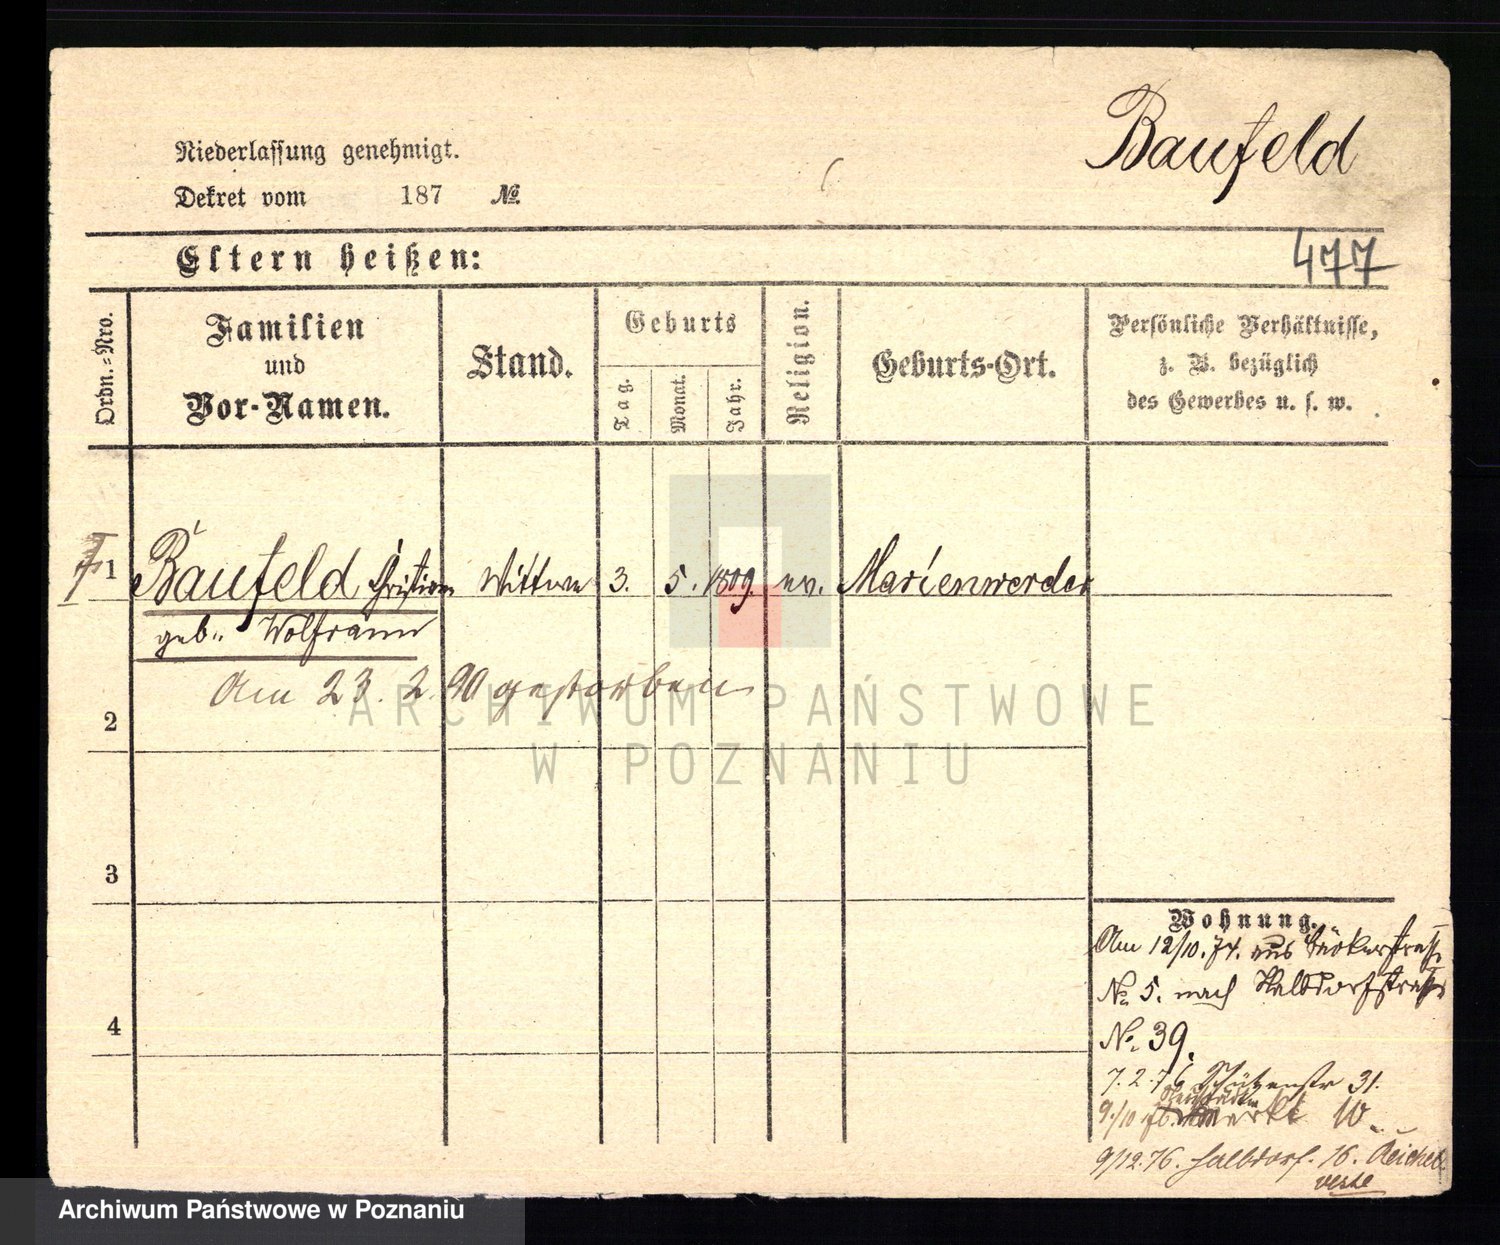 Baufeld
Niederlassung genehmigt.
Dekret vom 187 №
Eltern heißen:
477
Ordn.-Nro.
Familien
und
Vor-Namen.
Stand.
Geburts
Tag.
Monat.
Jahr.
Religion.
Geburts-Ort.
Persönliche Verhältnisse,
z. B. bezüglich
des Gewerbes u. s. w.
1 Baufeld Wittwe 3. 5. 1809. ev. Marienwerder
geb. Wolframm
Am 23. 2. 90 gestorben
2
3
4
Wohnung.
Am 12/10. 74. aus
№ 5. nach Halbdorfstraße
№ 39.
7. 2. 76 Schützenstr 31.
9/10 76. markt 10.
9/12. 76. Halbdorf. 16.
ARCHIWUM PAŃSTWOWE
W POZNANIU
Archiwum Państwowe w Poznaniu